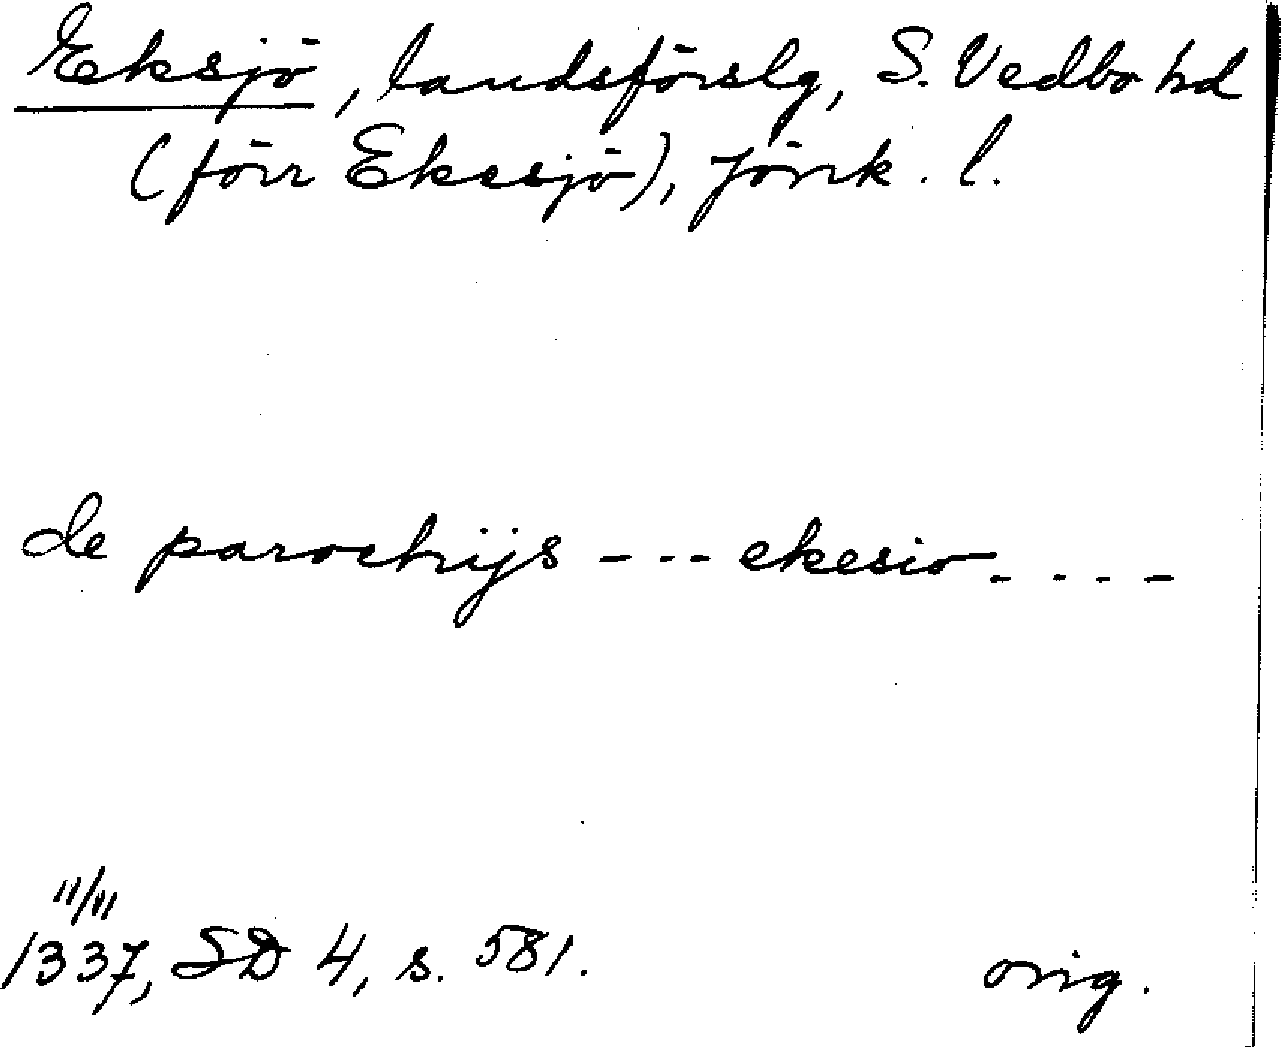 Eksjö, landsförslg, S. Vedbo hd
(förr Ekesjö), Jönk. l.
de parochijs --- ekesio ----
11/11
1337, SD 4, s. 581.
orig.